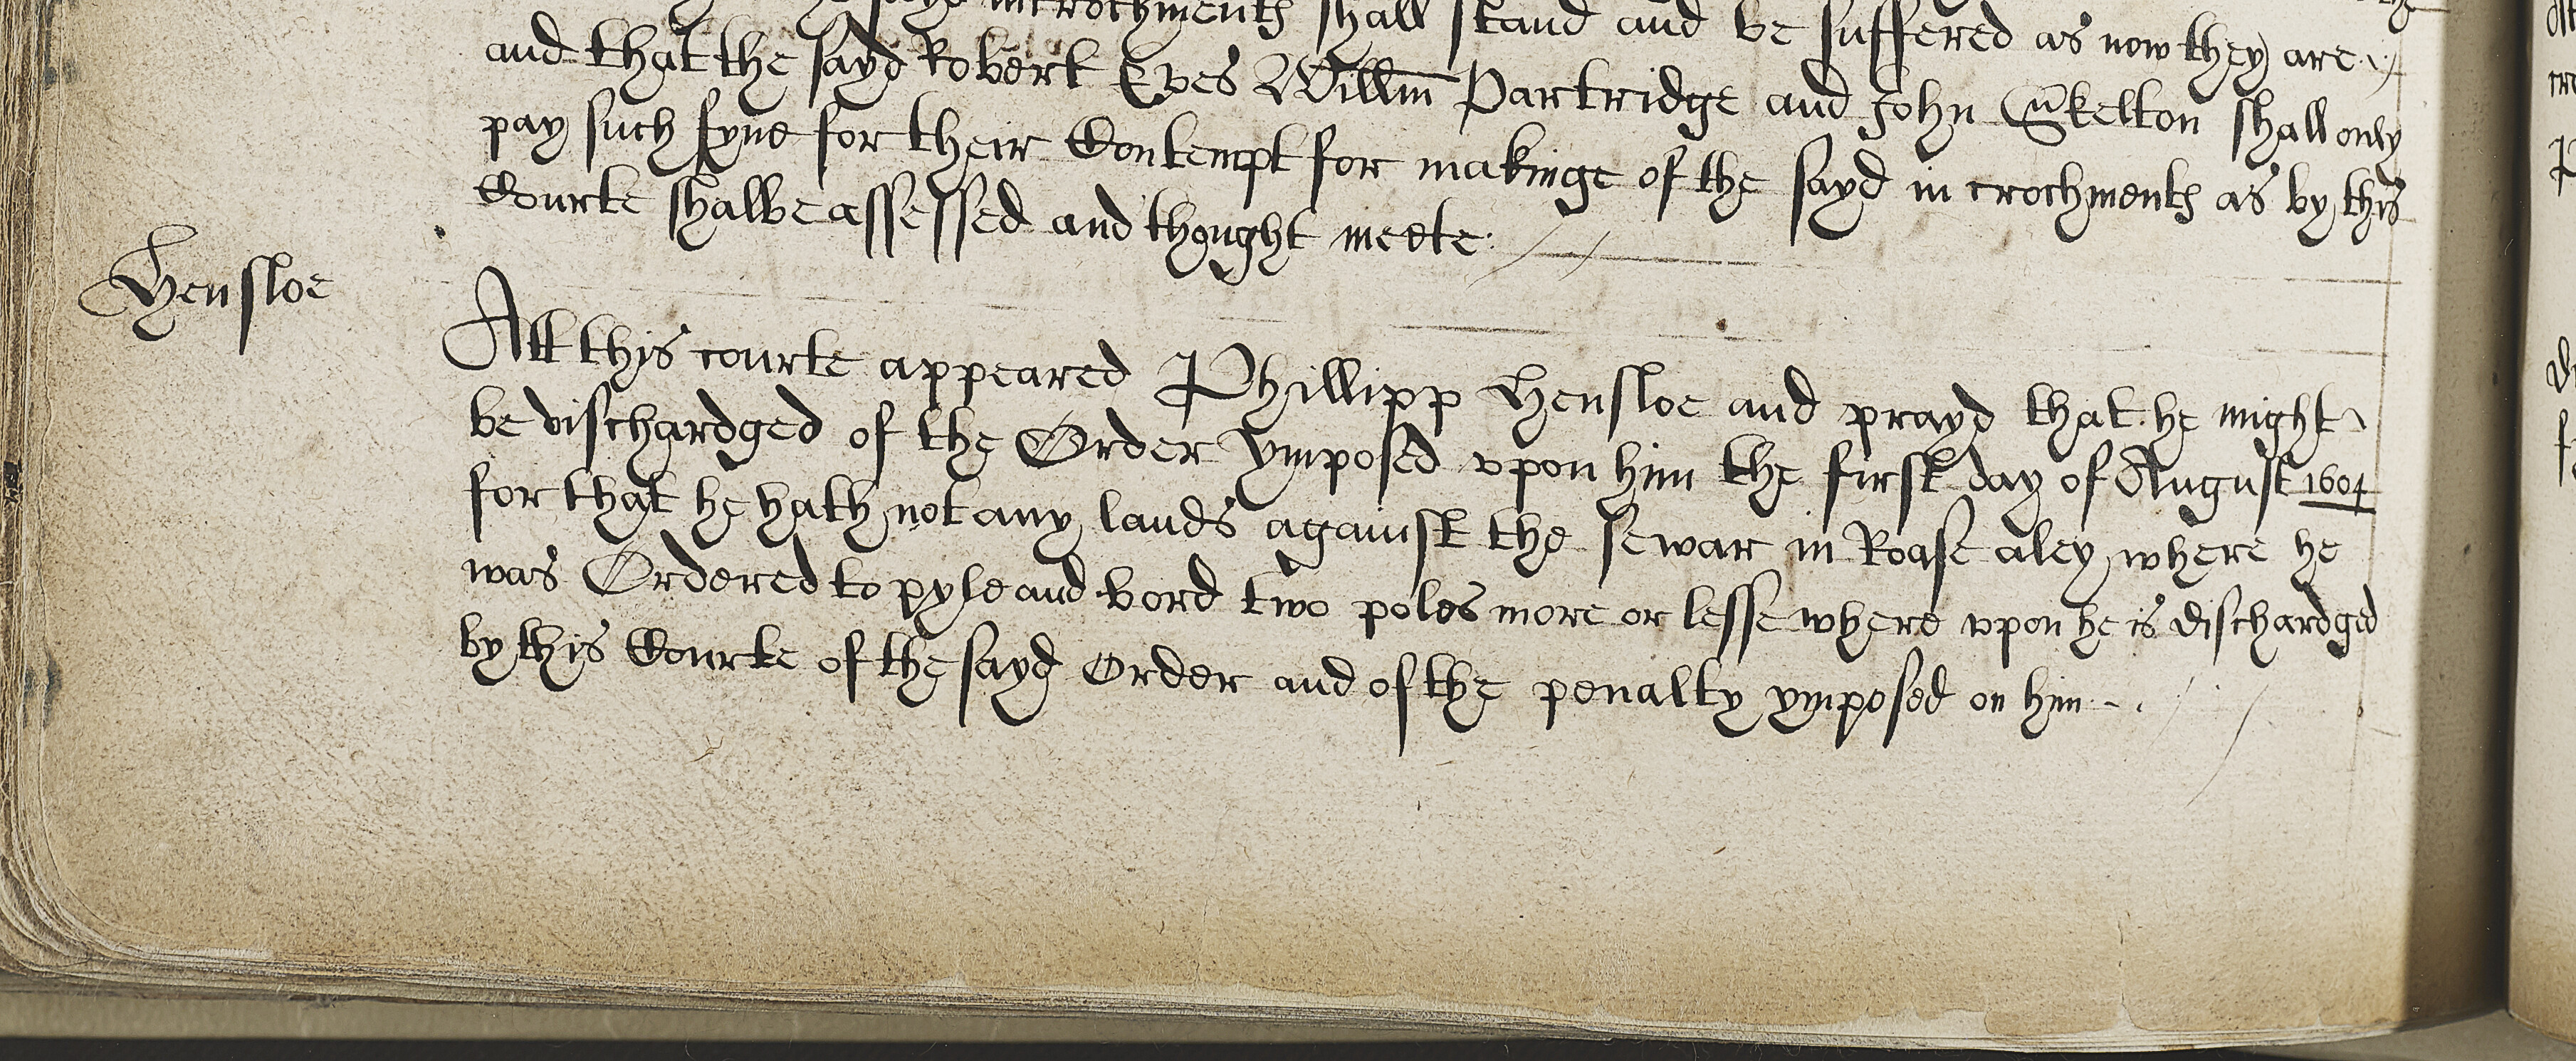 sayd incrochments shall stand and be suffered as now they are
and that the sayd Robert Eves Willm Partridge and John Skelton shall only
pay such fyne for their Contempt for makinge of the sayd incrochments as by this
Courte shalbe assessed and thought meete
Hensloe
Att this courte appeared Phillipp Hensloe and prayd that he might
be dischardged of the Order ymposed vpon him the first day of August 1604
for that he hath not any lands against the sewar in Roase aley where he
was Ordered to pyle and bord two poles more or lesse where vpon he is dischardged
by this Courte of the sayd Order and of the penalty ymposed on him